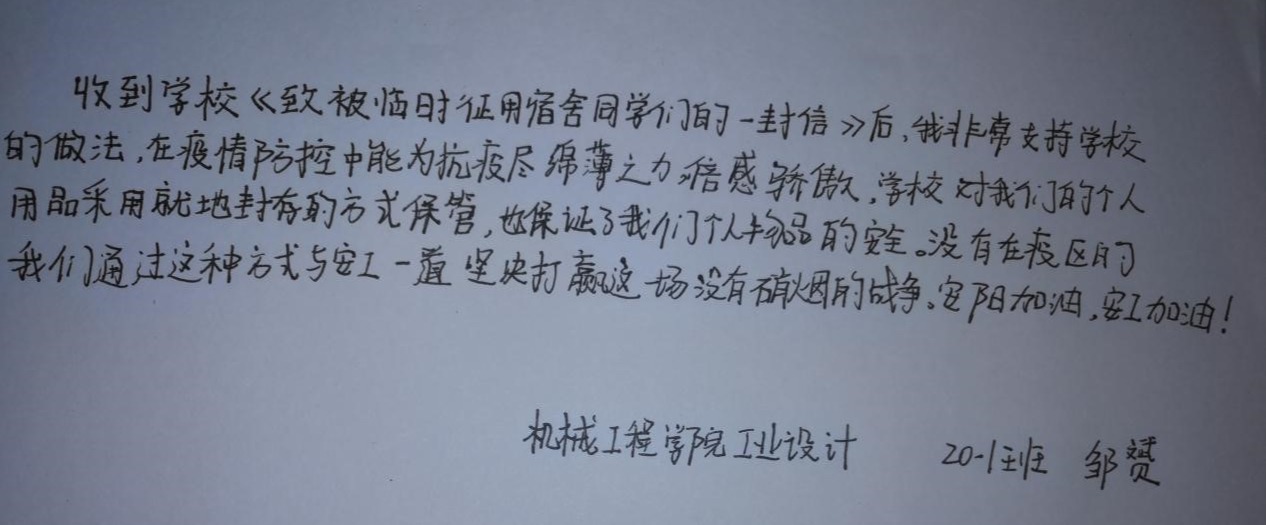 收到学校《致被临时征用宿舍同学们的一封信》后,我非常支持学校
的做法,在疫情防控中能为抗疫尽绵薄之力倍感骄傲,学校对我们的个人
用品采用就地封存的方式保管,也保证了我们个人物品的安全。没有在疫区的
我们通过这种方式与安工一道坚决打赢这一场没有硝烟的战争。安阳加油,安工加油!
机械工程学院工业设计 20-1班 邹赟